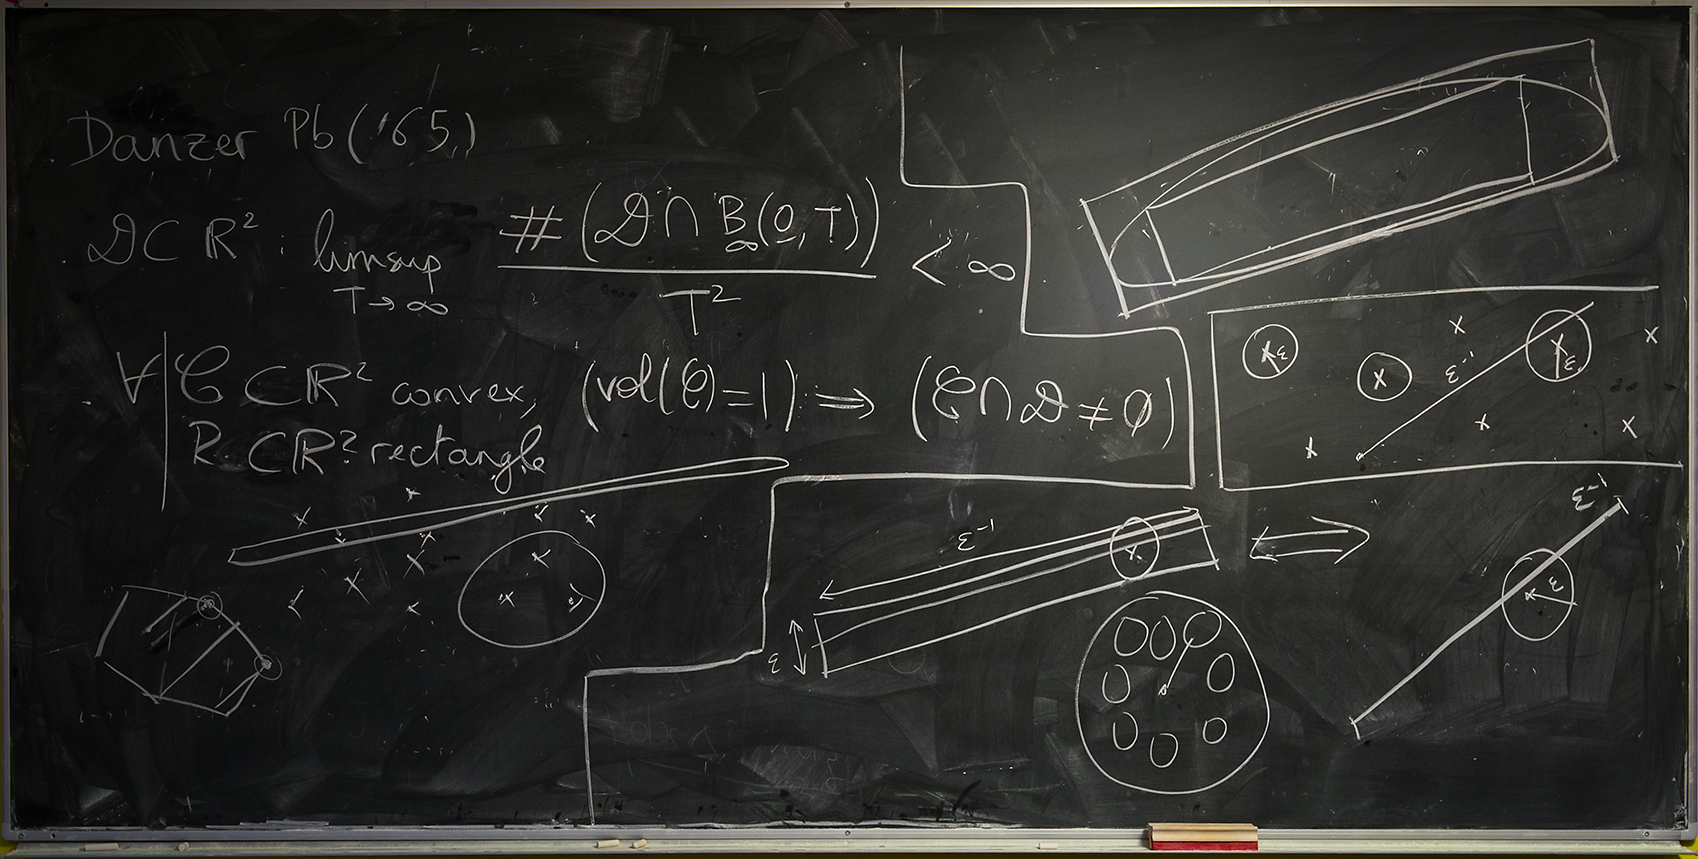 Danzer Pb ('65)
𝒟 ⊂ ℝ² : limsup T→∞ #(𝒟 ∩ B∞(0,T)) / T² < ∞
∀ | 𝒞 ⊂ ℝ² convex, (vol(𝒞)=1) ⇒ (𝒞 ∩ 𝒟 ≠ ∅)
R ⊂ ℝ² rectangle
ε
ε⁻¹
ε
ε⁻¹
ε
⟺
ε⁻¹
ε